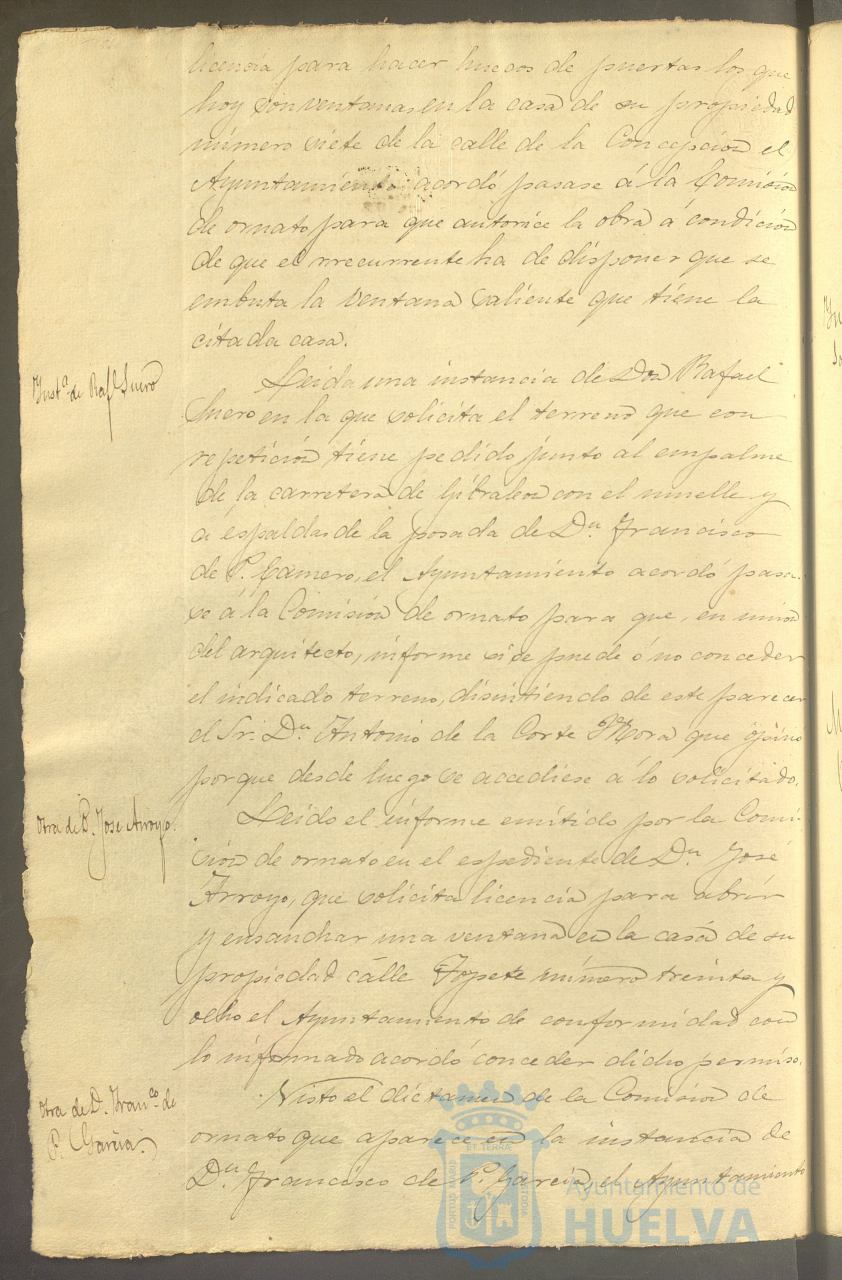 licencia para hacer huecos de puertas los que
hoy son ventanas en la casa de su propiedad
número siete de la calle de la Concepción el
Ayuntamiento acordó pasase á la Comisión
de ornato para que autorice la obra á condición
de que el rrecurrente ha de disponer que se
embuta la ventana saliente que tiene la
citada casa.
Inst.ª de Raf.l Suero
Leida una instancia de Don Rafael
Suero en la que solicita el terreno que con
repetición tiene pedido junto al empalme
de la carretera de Gibraleon con el muelle y
a espaldas de la posada de D.n Francisco
de P. Camero, el Ayuntamiento acordó pasa-
se á la Comisión de ornato para que, en union
del arquitecto, informe si se puede ó no conceder
el indicado terreno, disintiendo de este parecer
el Sr. D.n Antonio de la Corte Mora que opino
porque desde luego se accediese á lo solicitado.
Otra de D. Jose Arroyo.
Leido el informe emitido por la Comi-
sion de ornato en el espediente de D.n José
Arroyo, que solicita licencia para abrir
y ensanchar una ventana en la casa de su
propiedad calle Topete número treinta y
ocho el Ayuntamiento de conformidad con
lo informado acordó conceder dicho permiso.
Otra de D. Fran.co de
P. Garcia.
Visto el dictamen de la Comision de
ornato que aparece en la instancia de
D.n Francisco de P. Garcia, el Ayuntamiento
ET TERRÆ
PORTUS MARIS
CUSTODIA
Ayuntamiento de
HUELVA